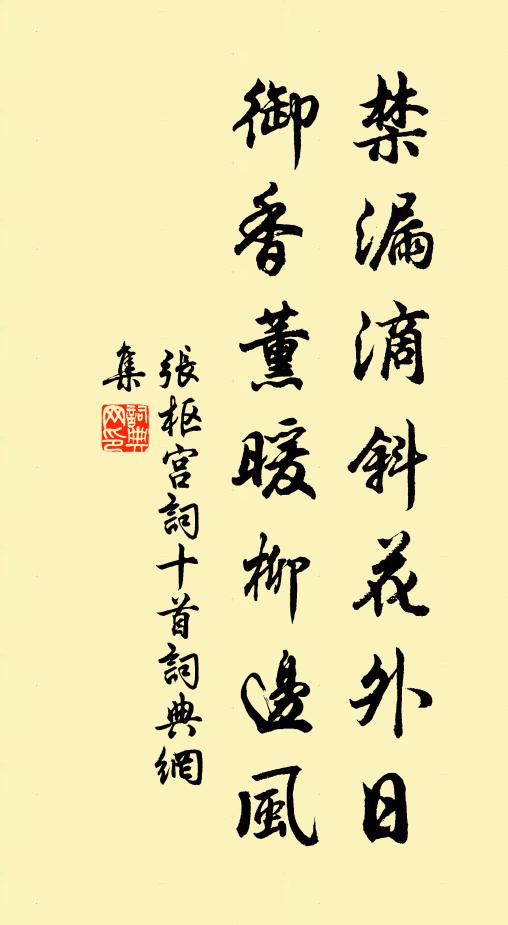 禁漏滴斜花外日
御香薰暖柳邊風
張枢宫詞十首詞典網
集
詞典網印